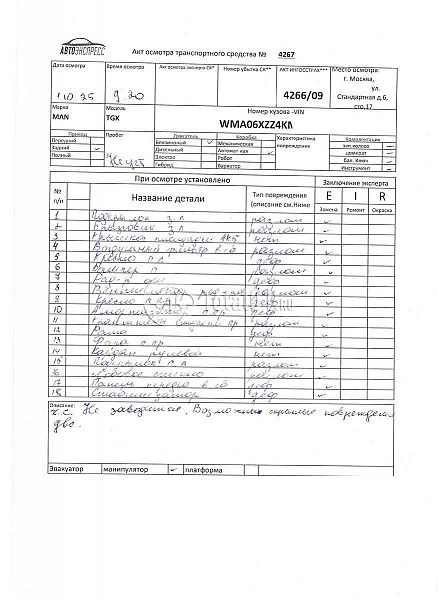 АВТОЭКСПРЕСС
Акт осмотра транспортного средства № 4267
Дата осмотра
Время осмотра
Акт осмотра эксперта СК*
Номер убытка СК**
АКТ ИНГОССТРАХ***
Место осмотра:
г. Москва,
ул.
Стандартная д.6,
стр.17
9.20
4266/09
Марка
MAN
Модель
TGX
Номер кузова -VIN
WMA06XZZ4KM
Привод
Передний
Задний
Полный
Пробег
Не уст
Двигатель
Бензиновый
Дизельный
Электро
Гибрид
Коробка
Механическая
Автомат-кая
Робот
Вариатор
Характеристика
повреждения
Комплектация
зап.колесо
домкрат
бал. Ключ
Инструмент
При осмотре установлено
Заключение эксперта
№
п/п
Название детали
Тип повреждения
(описание см.Ниже
E I R
Замена Ремонт Окраска
1 Подкрылок з л разлом
2 Брызговик з л разлом
3 Крышка площадки АКБ нет
4 Воздушный фильтр в сб разлом
5 Крыло с л деф
6 разлом
7 деф
8 Вентилятор разлом
9 Кресло п пр деф
10 Амортизатор п пр деф
11 разлом
12 Рама деф
13 Фара п пр нет
14 Кардан рулевой нет
15 разлом
16 Лобовое стекло разлом
17 Панель передка в сб деф
18 Стабилизатор деф
Описание:
т.с. Не заводится. Возможны скрытые повреждения
двс.
Эвакуатор манипулятор платформа